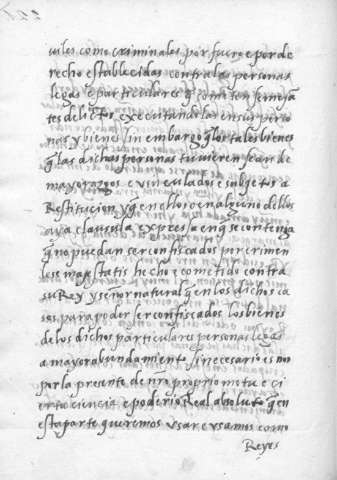 uiles como criminales por fuero e por de
recho establecidas contra las personas
legas e particulares q cometen semejã
tes delictos, executandolas en sus perso
nas y bienes sin embargo q los tales bienes
q las dichas personas tuuieren sean de
mayorazgos e vinculados e subjetos a
Restitucion y q en ellos o en alguno dellos
aya clausula expresa en q se contenga
q no puedan ser confiscados por crimen
lese magestatis hecho e cometido contra
su Rey y señor natural q en los dichos ca
sos para poder ser confiscados los bienes
de los dichos particulares personas legas
a mayor abundamiento si necesario es nos
por la presente de nro proprio motu e ci
erta ciencia e poderio Real absoluto q en
esta parte queremos vsar e vsamos como
Reyes